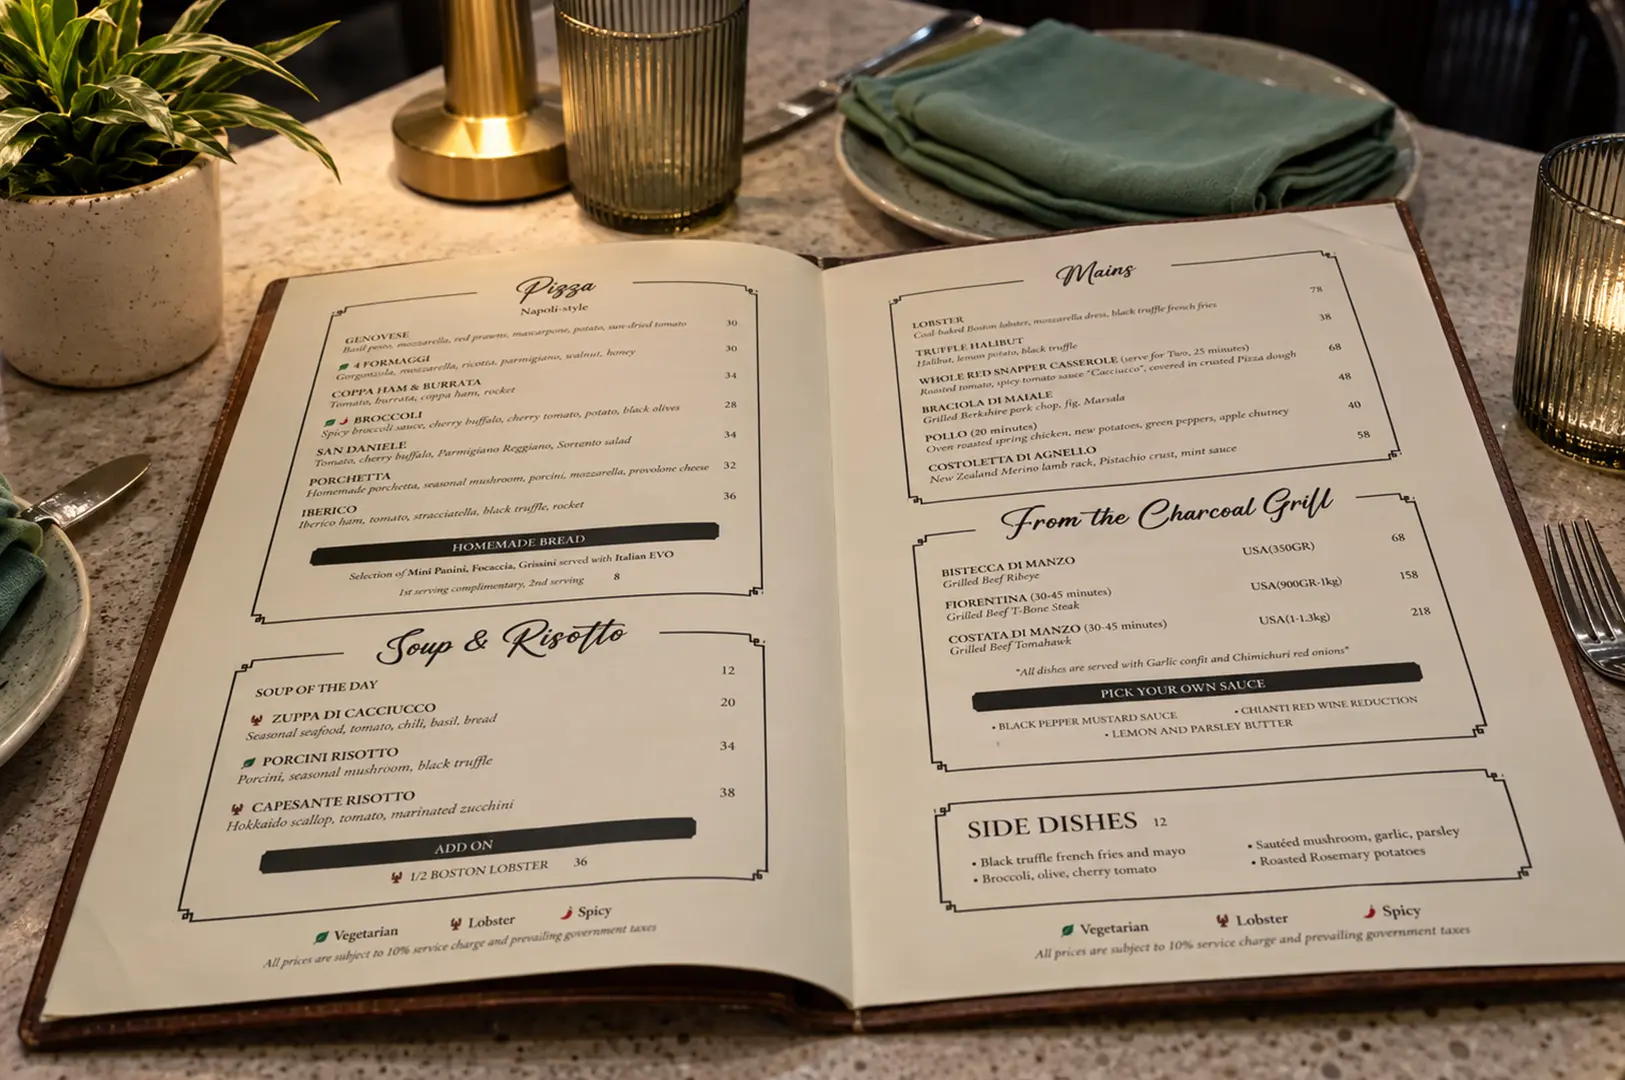 Pizza
Napoli-style
GENOVESE 30
Basil pesto, mozzarella, red prawns, mascarpone, potato, sun-dried tomato
4 FORMAGGI 30
Gorgonzola, mozzarella, ricotta, parmigiano, walnut, honey
COPPA HAM & BURRATA 34
Tomato, burrata, coppa ham, rocket
BROCCOLI 28
Spicy broccoli sauce, cherry buffalo, cherry tomato, potato, black olives
SAN DANIELE 34
Tomato, cherry buffalo, Parmigiano Reggiano, Sorrento salad
PORCHETTA 32
Homemade porchetta, seasonal mushroom, porcini, mozzarella, provolone cheese
IBERICO 36
Iberico ham, tomato, stracciatella, black truffle, rocket
HOMEMADE BREAD
Selection of Mini Panini, Focaccia, Grissini served with Italian EVO
1st serving complimentary, 2nd serving 8
Soup & Risotto
SOUP OF THE DAY 12
ZUPPA DI CACCIUCCO 20
Seasonal seafood, tomato, chili, basil, bread
PORCINI RISOTTO 34
Porcini, seasonal mushroom, black truffle
CAPESANTE RISOTTO 38
Hokkaido scallop, tomato, marinated zucchini
ADD ON
1/2 BOSTON LOBSTER 36
Vegetarian Lobster Spicy
All prices are subject to 10% service charge and prevailing government taxes
Mains
LOBSTER 78
Coal-baked Boston lobster, mozzarella dress, black truffle french fries
TRUFFLE HALIBUT 38
Halibut, lemon potato, black truffle
WHOLE RED SNAPPER CASSEROLE (serve for Two, 25 minutes) 68
Roasted tomato, spicy tomato sauce "Cacciucco", covered in crusted Pizza dough
BRACIOLA DI MAIALE 48
Grilled Berkshire pork chop, fig, Marsala
POLLO (20 minutes) 40
Oven roasted spring chicken, new potatoes, green peppers, apple chutney
COSTOLETTA DI AGNELLO 58
New Zealand Merino lamb rack, Pistachio crust, mint sauce
From the Charcoal Grill
BISTECCA DI MANZO USA(350GR) 68
Grilled Beef Ribeye
FIORENTINA (30-45 minutes) USA(900GR-1kg) 158
Grilled Beef T-Bone Steak
COSTATA DI MANZO (30-45 minutes) USA(1-1.3kg) 218
Grilled Beef Tomahawk
"All dishes are served with Garlic confit and Chimichuri red onions"
PICK YOUR OWN SAUCE
• BLACK PEPPER MUSTARD SAUCE • CHIANTI RED WINE REDUCTION
• LEMON AND PARSLEY BUTTER
SIDE DISHES 12
• Black truffle french fries and mayo • Sautéed mushroom, garlic, parsley
• Broccoli, olive, cherry tomato • Roasted Rosemary potatoes
Vegetarian Lobster Spicy
All prices are subject to 10% service charge and prevailing government taxes